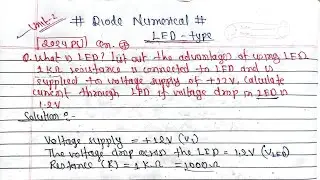 Unit-2
# Diode Numerical #
LED - type
[2024 PU]
Q. What is LED? list out the advantages of using LED
1 kΩ resistance is connected to LED and is
supplied to voltage supply of +12V. Calculate
current through LED if voltage drop in LED is
1.2V
Solution:-
Voltage supply = +12V (Vs)
The voltage drop across the LED = 1.2V (VLED)
Resistance (R) = 1 kΩ = 1000Ω